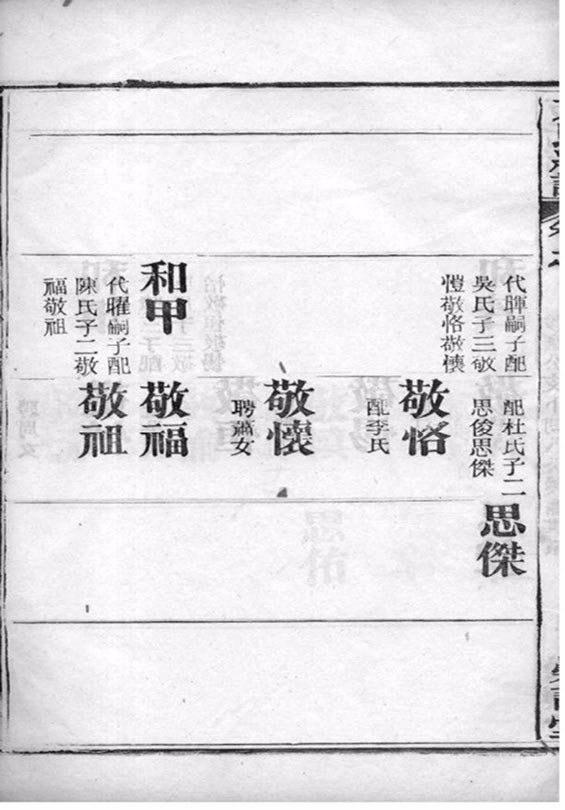 代暉嗣子配
吳氏子三敬
愷敬恪敬懷
配杜氏子二
思俊思傑
思傑
敬恪
配李氏
敬懷
聘蕭女
和甲
代曜嗣子配
陳氏子二敬
福敬祖
敬福
敬祖